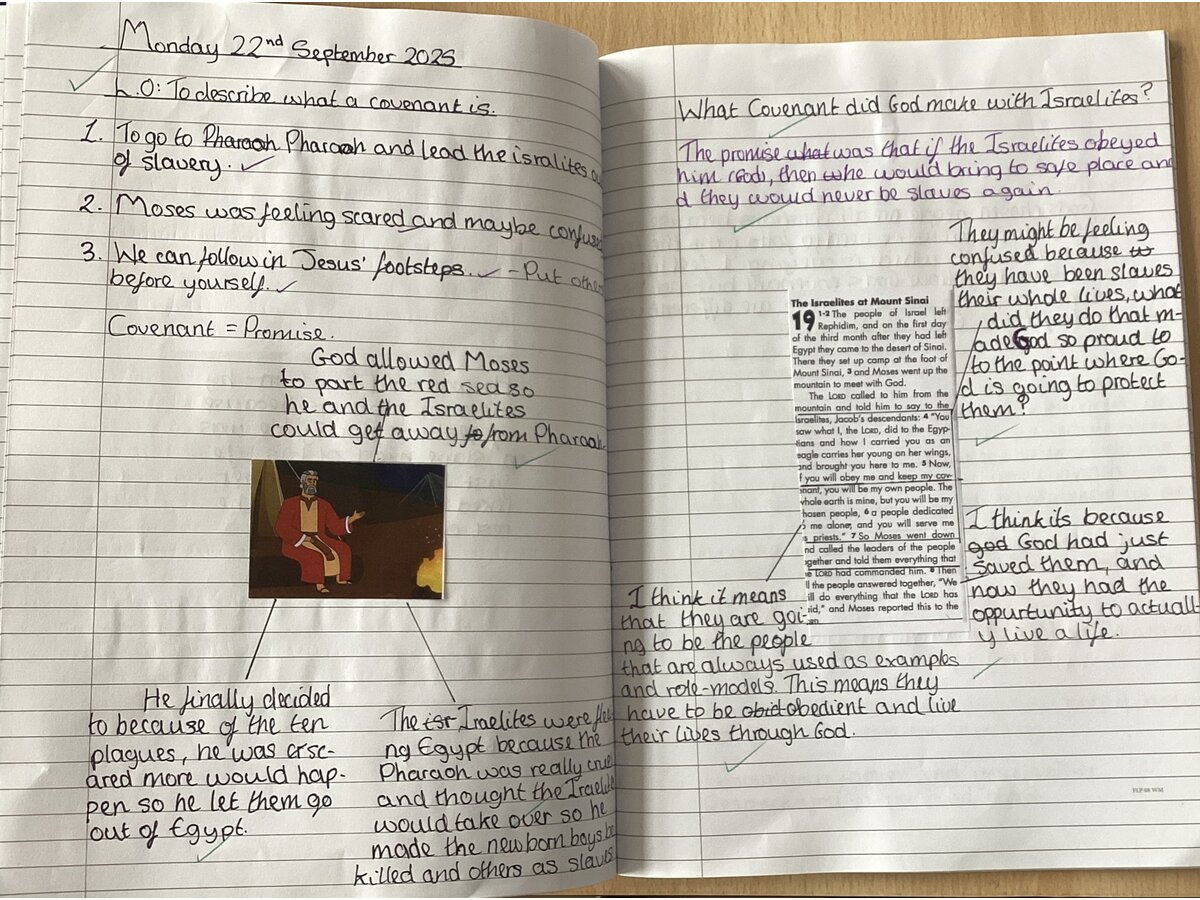 Monday 22nd September 2025
L.O: To describe what a covenant is.
1. To go to Pharaoh Pharaoh and lead the isralites
of slavery.
2. Moses was feeling scared and maybe
3. We can follow in Jesus' footsteps. - Put
before yourself.
Covenant = Promise.
God allowed Moses
to part the red sea so
he and the Israelites
could get away to from Pharaoh.
He finally decided
to because of the ten
plagues, he was
ared more would hap-
pen so he let them go
out of Egypt.
The isr Iraelites were
ng Egypt because the
Pharaoh was really
and thought the
would take over so he
made the newborn boys
killed and others as slaves
What Covenant did God make with Israelites?
The promise what was that if the Israelites obeyed
him (God), then would bring to safe place an
d they would never be slaves again.
They might be feeling
confused because to
they have been slaves
their whole lives, what
did they do that m-
ade God so proud to
to the point where Go-
d is going to protect
them?
The Israelites at Mount Sinai
19 1-2 The people of Israel left
Rephidim, and on the first day
of the third month after they had left
Egypt they came to the desert of Sinai.
There they set up camp at the foot of
Mount Sinai, 3 and Moses went up the
mountain to meet with God.
The LORD called to him from the
mountain and told him to say to the
Israelites, Jacob's descendants: 4 "You
saw what I, the LORD, did to the Egyp-
tians and how I carried you as an
eagle carries her young on her wings,
and brought you here to me. 5 Now,
f you will obey me and keep my cov-
nant, you will be my own people. The
whole earth is mine, but you will be my
hosen people, 6 a people dedicated
me alone, and you will serve me
s priests." 7 So Moses went down
nd called the leaders of the people
ogether and told them everything that
e LORD had commanded him. 8 Then
ll the people answered together, "We
ill do everything that the LORD has
id," and Moses reported this to the
I think its because
god God had just
saved them, and
now they had the
oppurtunity to actuall
y live a life.
I think it means
that they are goi-
ng to be the people
that are always used as examples
and role-models. This means they
have to be obid obedient and live
their lives through God.